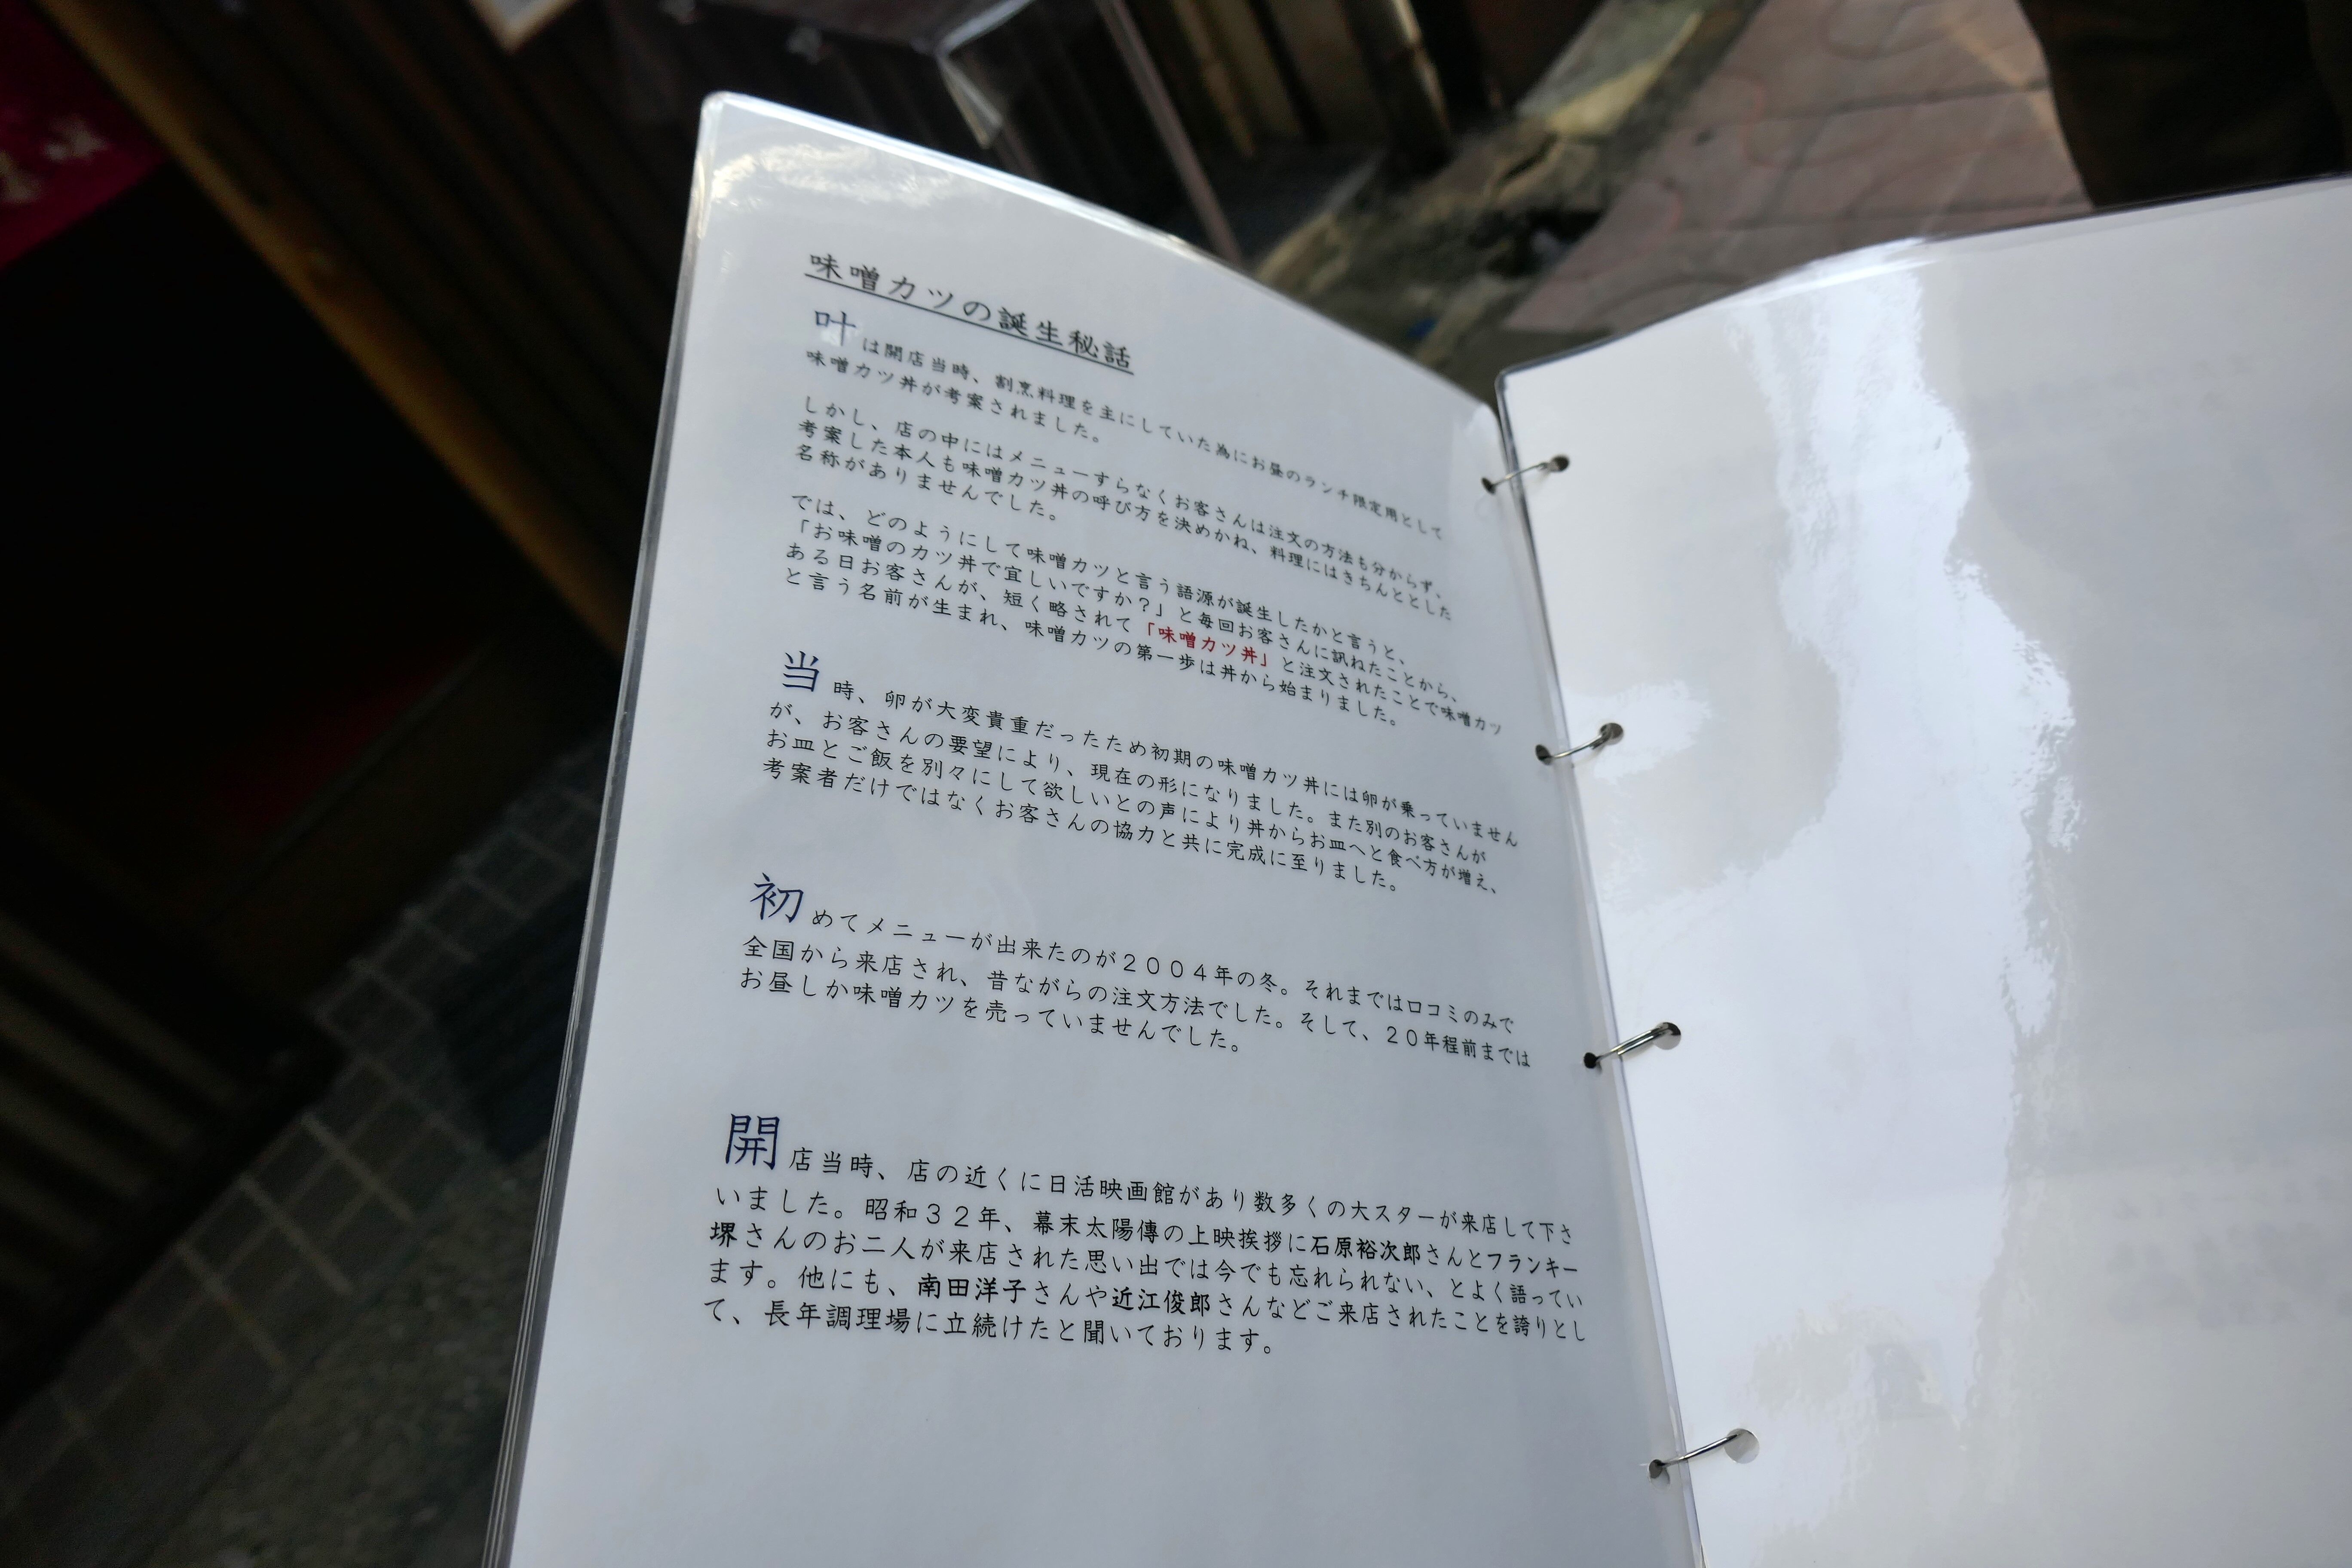 味噌カツの誕生秘話
叶は開店当時、割烹料理を主にしていた為にお昼のランチ限定用として
味噌カツ丼が考案されました。
しかし、店の中にはメニューすらなくお客さんは注文の方法も分からず、
考案した本人も味噌カツ丼の呼び方を決めかね、料理にはきちんととした
名称がありませんでした。
では、どのようにして味噌カツと言う語源が誕生したかと言うと、
「お味噌のカツ丼で宜しいですか？」と毎回お客さんに訊ねたことから、
ある日お客さんが、短く略されて「味噌カツ丼」と注文されたことで味噌カツ
と言う名前が生まれ、味噌カツの第一歩は丼から始まりました。
当時、卵が大変貴重だったため初期の味噌カツ丼には卵が乗っていません
が、お客さんの要望により、現在の形になりました。また別のお客さんが
お皿とご飯を別々にして欲しいとの声により丼からお皿へと食べ方が増え、
考案者だけではなくお客さんの協力と共に完成に至りました。
初めてメニューが出来たのが２００４年の冬。それまでは口コミのみで
全国から来店され、昔ながらの注文方法でした。そして、２０年程前までは
お昼しか味噌カツを売っていませんでした。
開店当時、店の近くに日活映画館があり数多くの大スターが来店して下さ
いました。昭和３２年、幕末太陽傳の上映挨拶に石原裕次郎さんとフランキー
堺さんのお二人が来店された思い出では今でも忘れられない、とよく語ってい
ます。他にも、南田洋子さんや近江俊郎さんなどご来店されたことを誇りとし
て、長年調理場に立続けたと聞いております。